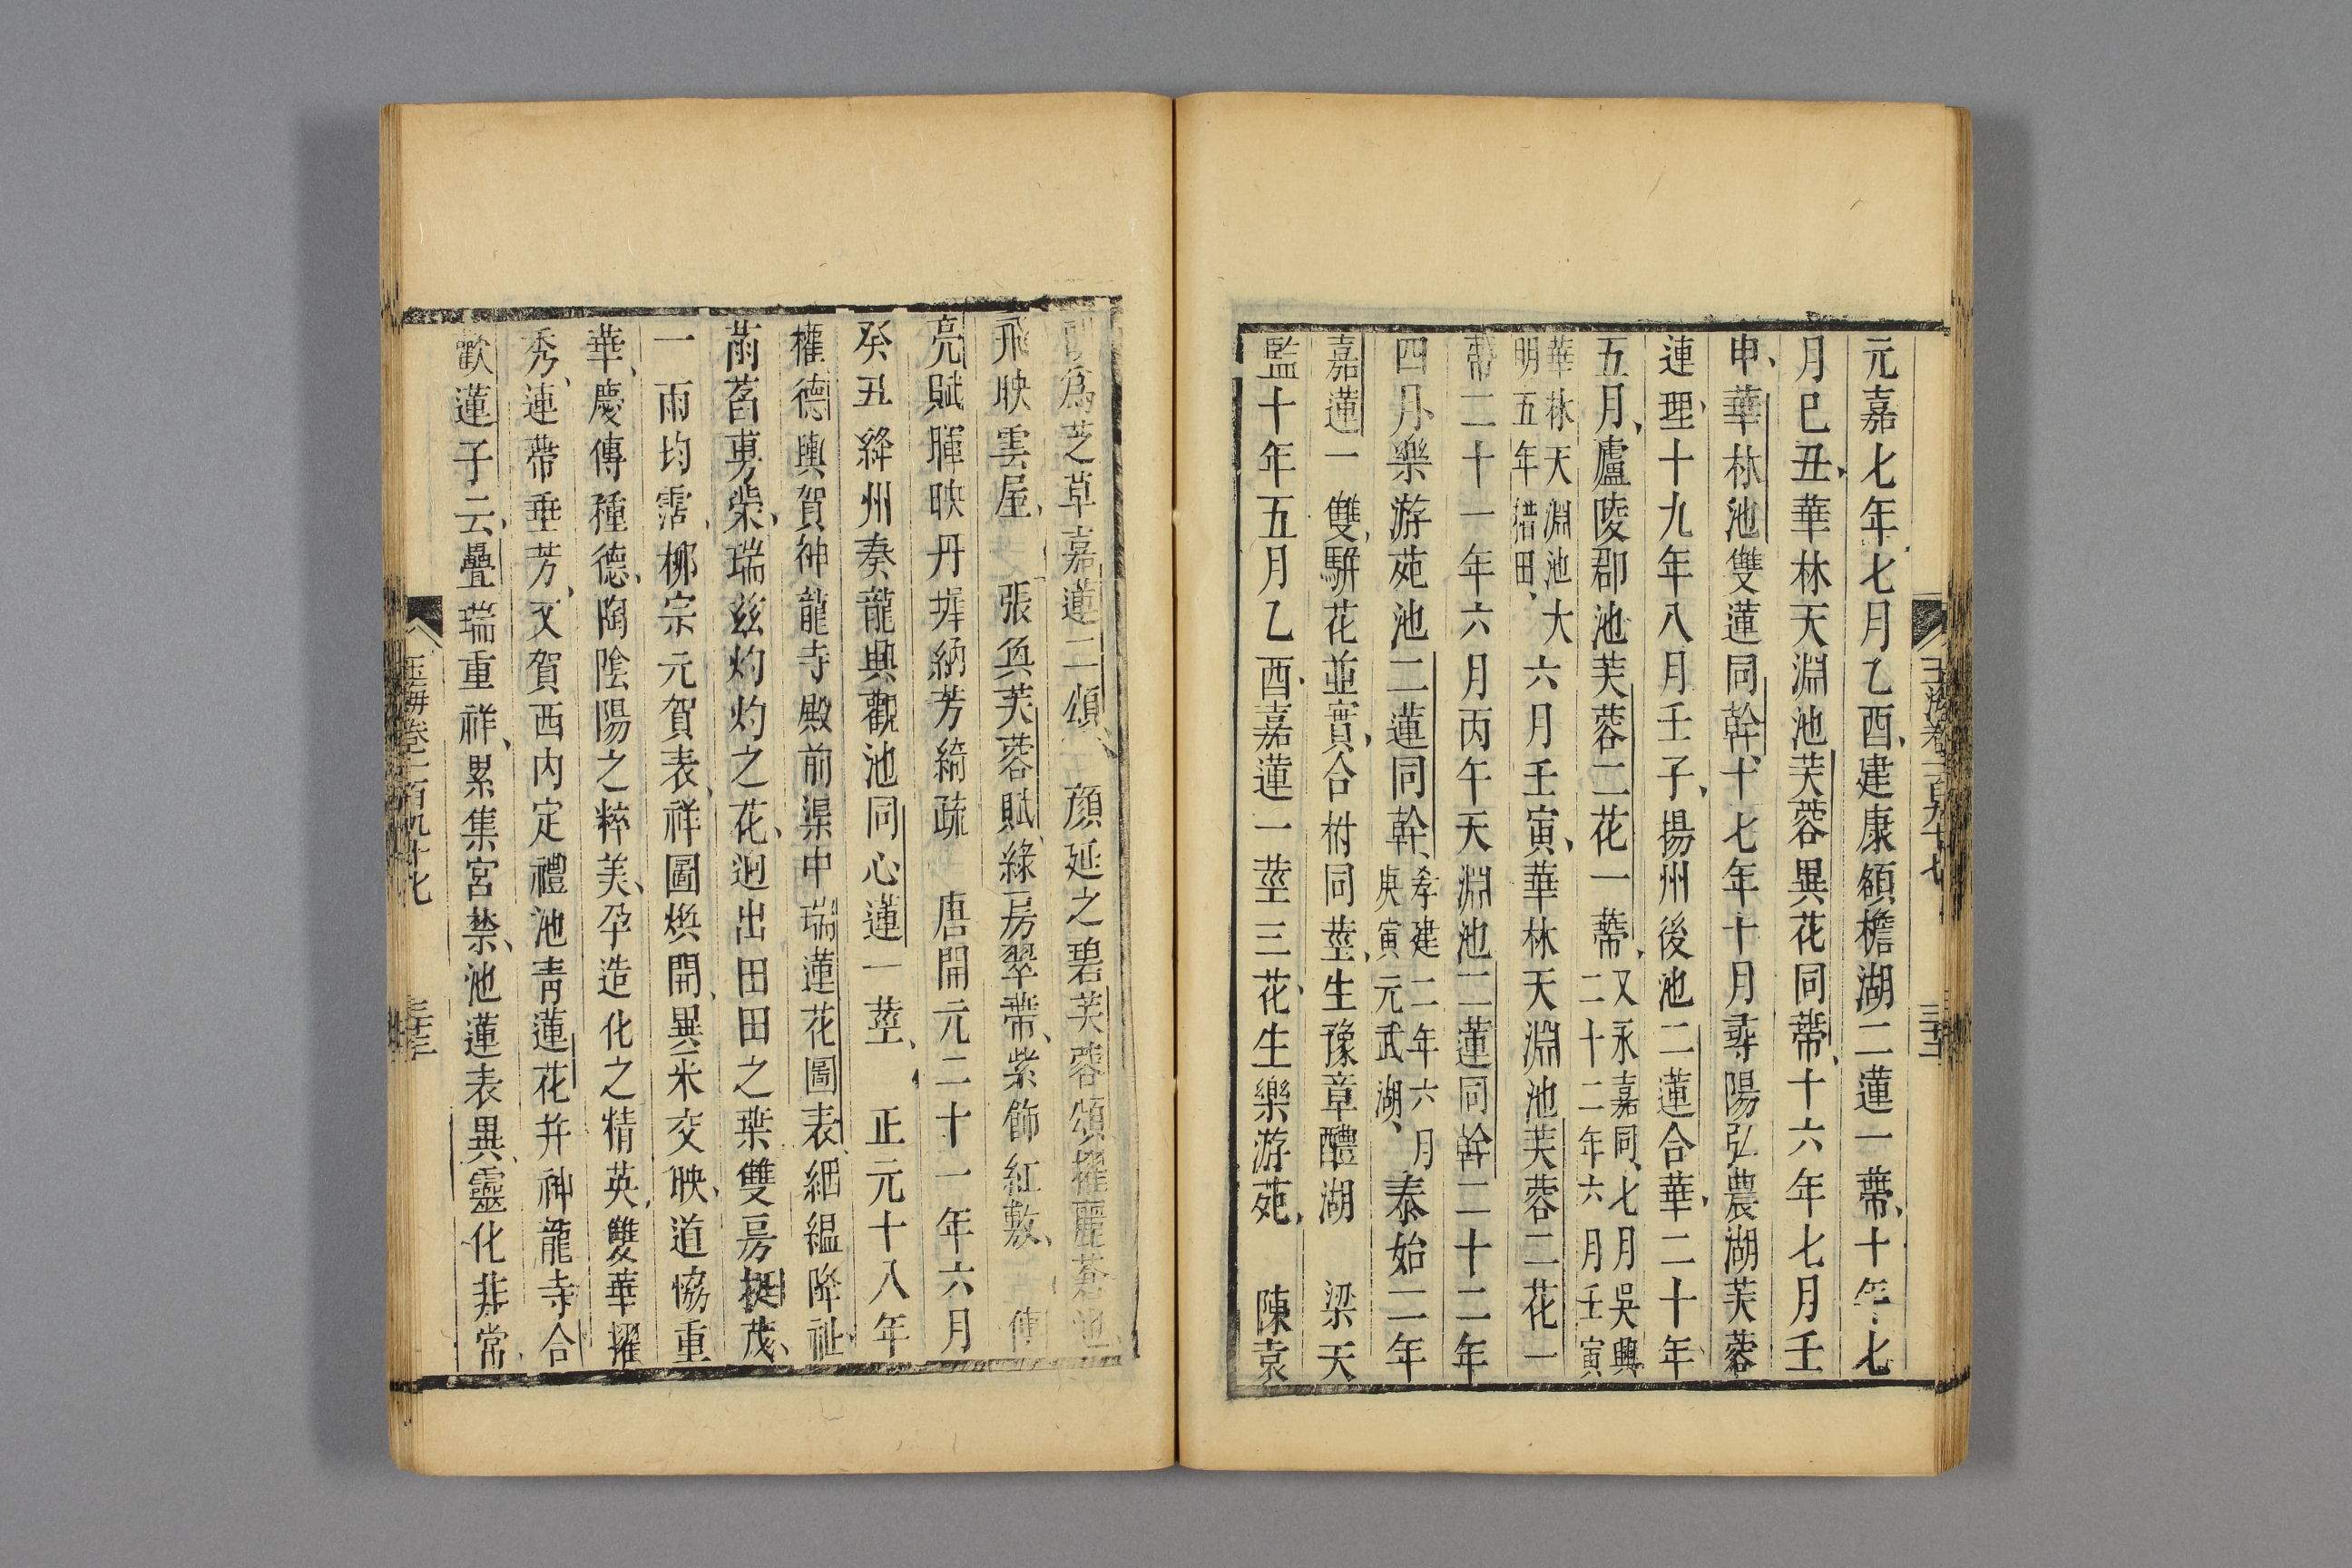 元嘉七年七月乙酉建康頟檐湖二蓮一蔕十年七
月巳丑華林天淵池芙蓉異花同蔕十六年七月壬
申華林池雙蓮同幹十七年十月尋陽弘農湖芙蓉
連理十九年八月壬子揚州後池二蓮合華二十年
五月廬陵郡池芙蓉二花一蔕又永嘉同七月吳興
二十二年六月壬寅
華林天淵池大
明五年耤田六月壬寅華林天淵池芙蓉二花一
蔕二十一年六月丙午天淵池二蓮同幹二十二年
四月樂游苑池二蓮同幹孝建二年六月
庚寅元武湖泰始二年
嘉蓮一雙駢花並實合柎同莖生豫章醴湖　梁天
監十年五月乙酉嘉蓮一莖三花生樂游苑　陳袁
爲芝草嘉蓮二頌　顔延之碧芙蓉頌擢麗蒼池
飛映雲屋　張奐芙蓉賦綠房翠蔕紫飾紅敷　傅
亮賦暉映丹墀納芳綺疏　唐開元二十一年六月
癸丑絳州奏龍興觀池同心蓮一莖　正元十八年
權德輿賀神龍寺殿前渠中瑞蓮花圖表絪縕降祉
菡萏旉榮瑞兹灼灼之花迥出田田之葉雙房挺茂
一雨均霑柳宗元賀表祥圖煥開異采交映道恊重
華慶傳種德陶陰陽之粹美孕造化之精英雙華擢
秀連蔕垂芳又賀西内定禮池青蓮花并神龍寺合
歡蓮子云疊瑞重祥累集宮禁池蓮表異靈化非常
玉海卷一百九十七
三十三